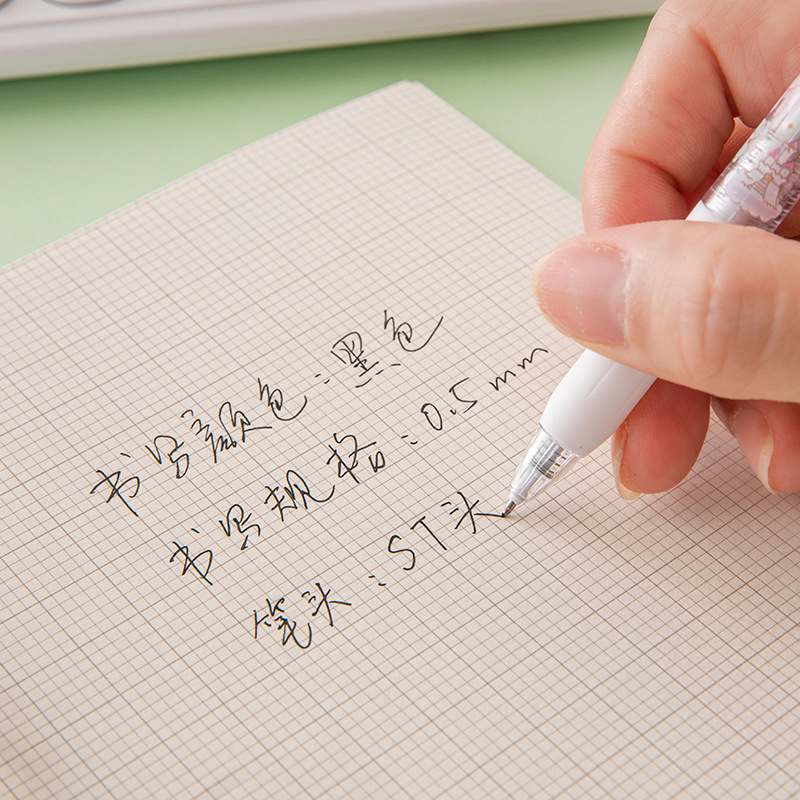 书写颜色:黑色
书写规格:0.5mm
笔头:ST头